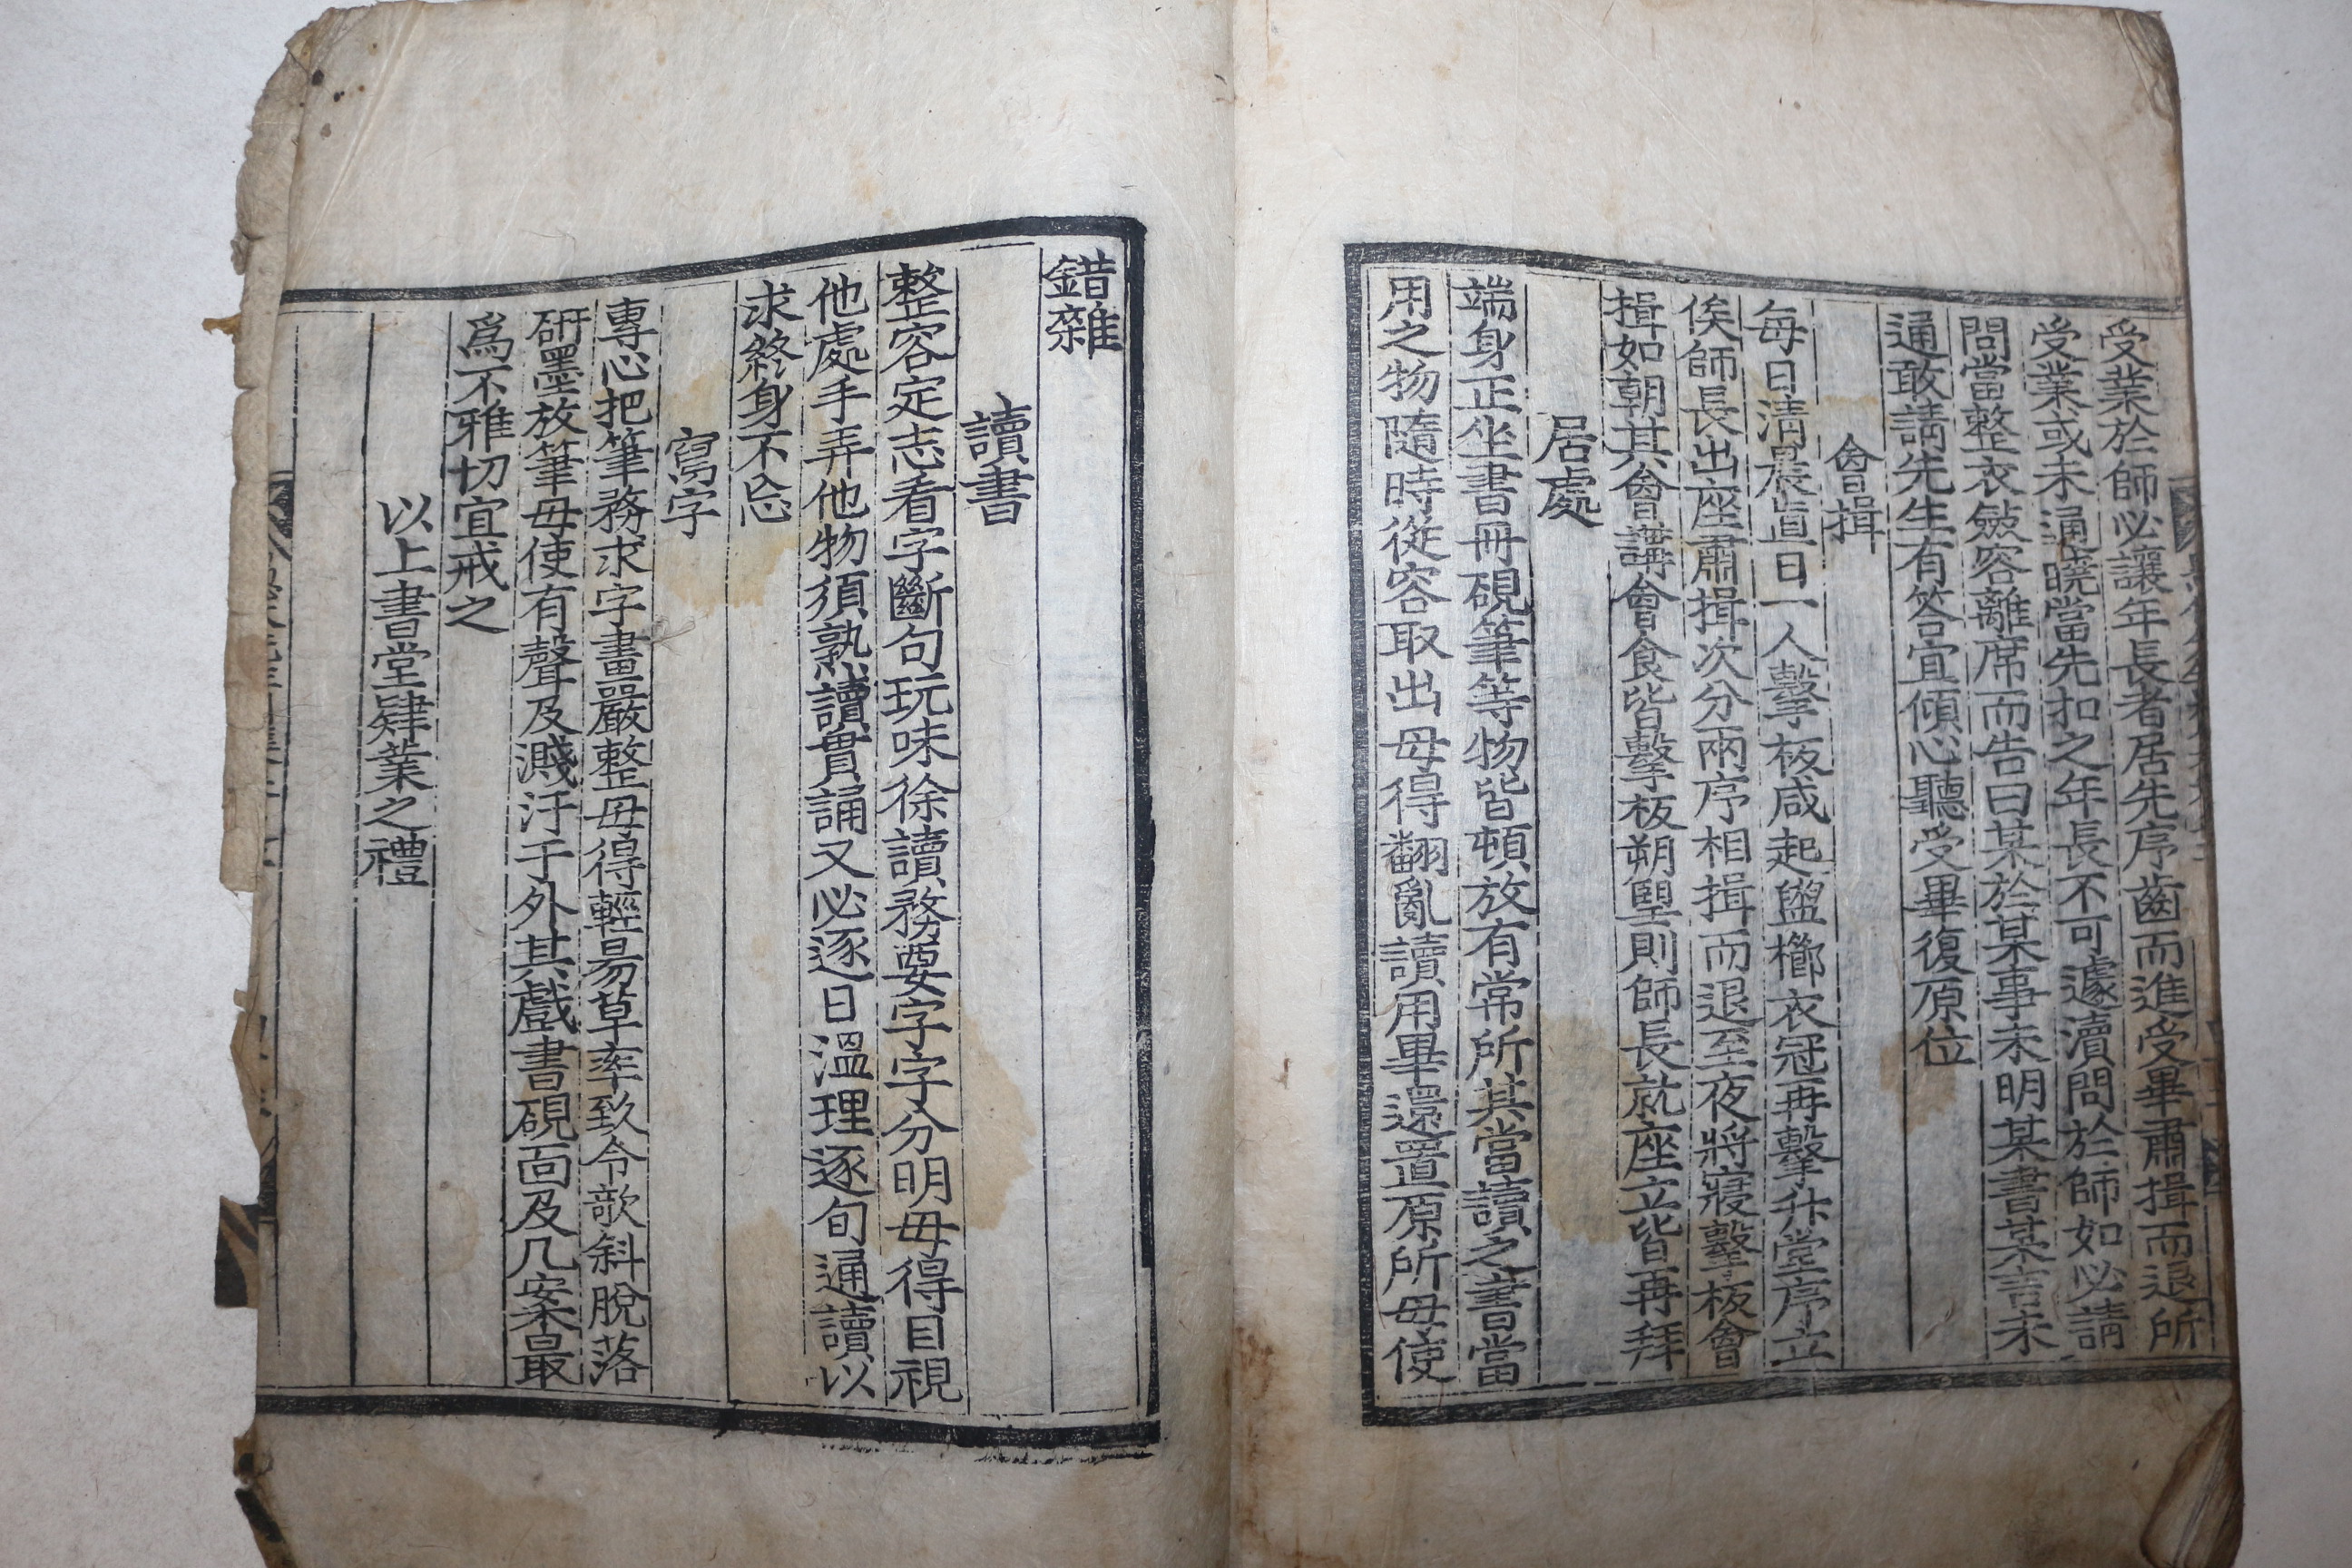 受業於師必讓年長者居先序齒而進受畢肅揖而退所
受業或未通曉當先扣之年長不可遽瀆問於師如必請
問當整衣斂容離席而告曰某於某事未明某書某言未
通敢請先生有答宜傾心聽受畢復原位
會揖
每日清晨直日一人擊板咸起盥櫛衣冠再擊升堂序立
俟師長出座肅揖次分兩序相揖而退至夜將寢擊板會
揖如朝其會講會食皆擊板朔望則師長就座立皆再拜
居處
端身正坐書冊硯筆等物皆頓放有常所其當讀之書當
用之物隨時從容取出毋得翻亂讀用畢還置原所毋使
錯雜
讀書
整容定志看字斷句玩味徐讀務要字字分明毋得目視
他處手弄他物須熟讀貫誦又必逐日溫理逐旬通讀以
求終身不忘
寫字
專心把筆務求字畫嚴整毋得輕易草率致令欹斜脫落
硏墨放筆毋使有聲及濺汙于外其戲書硯面及几案最
爲不雅切宜戒之
以上書堂肄業之禮